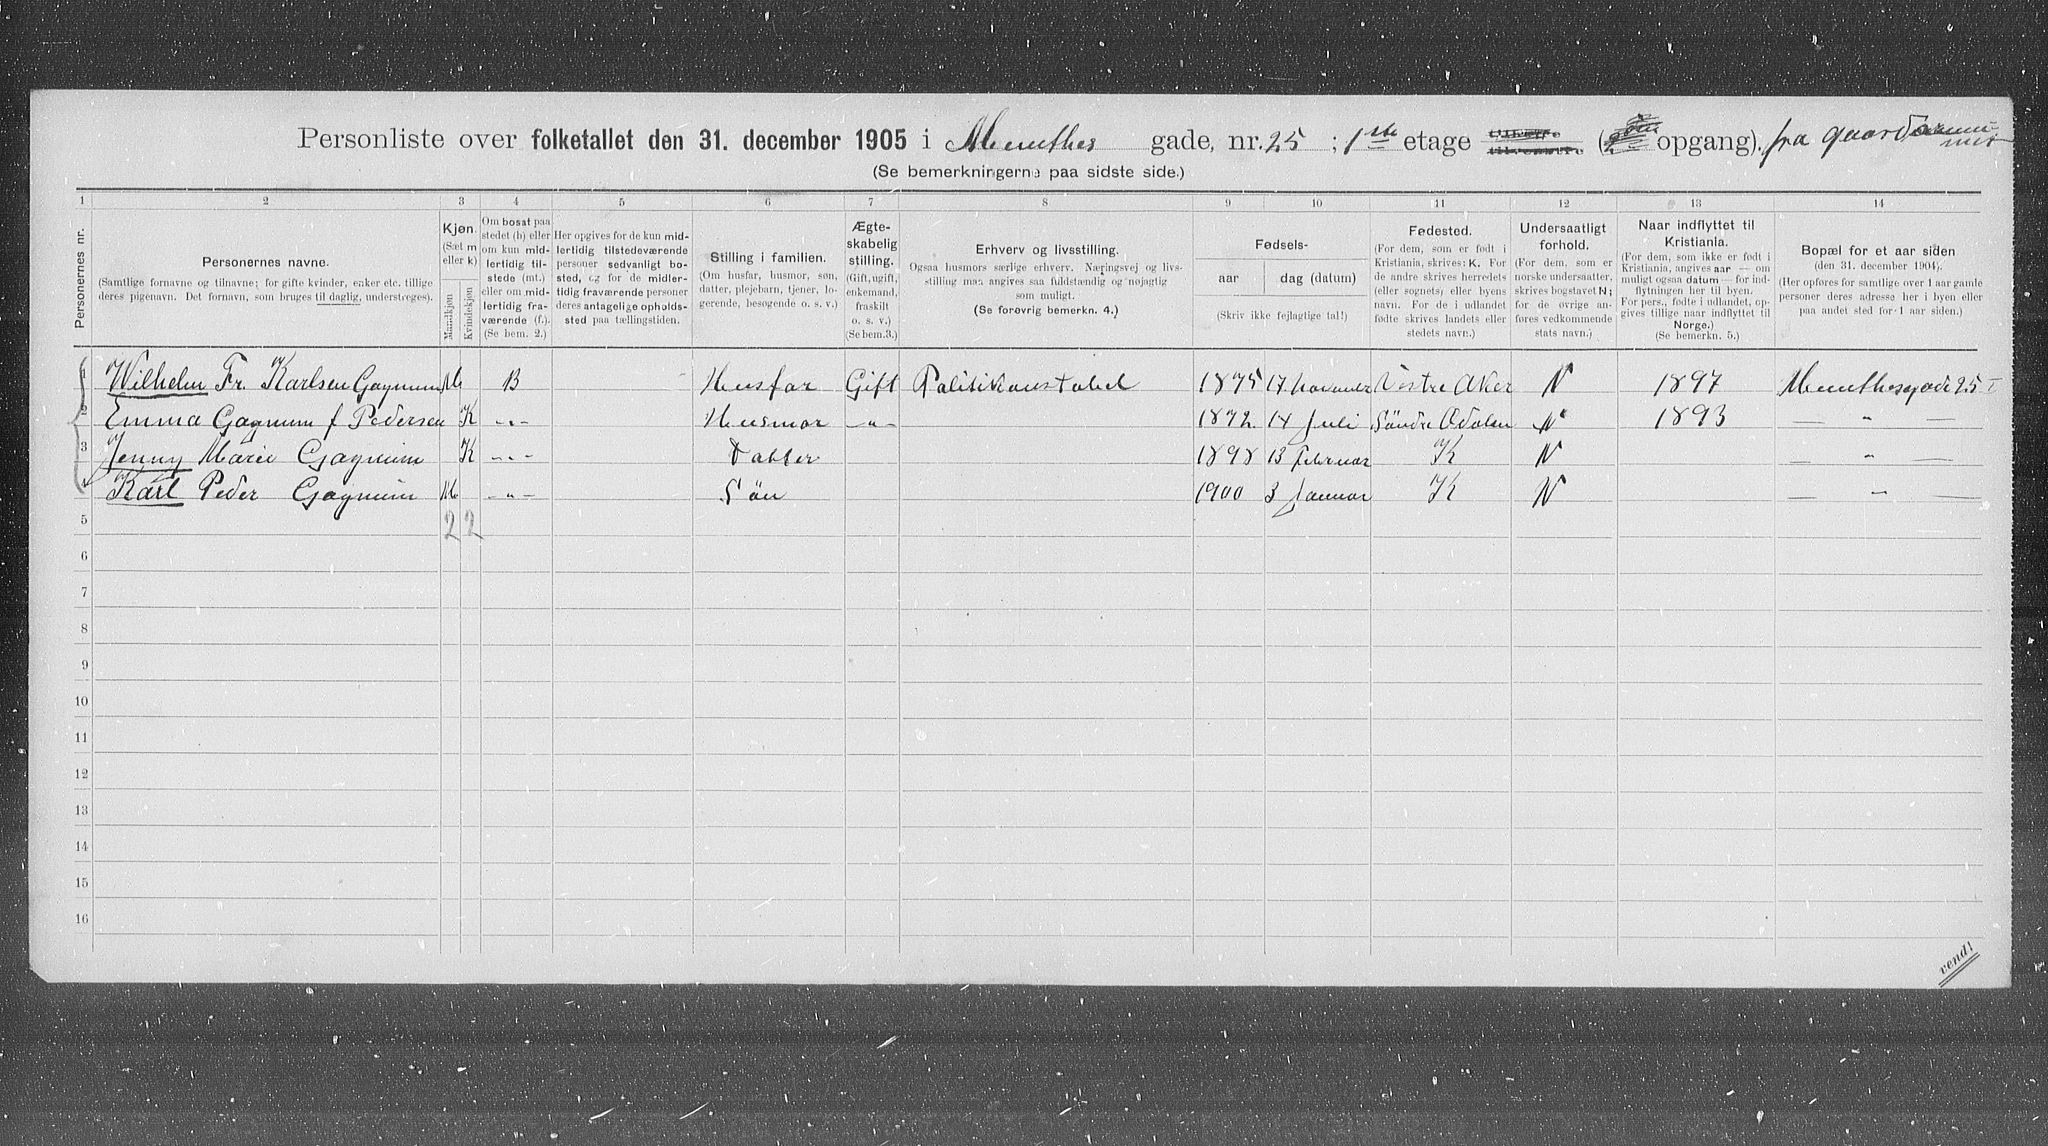 Personliste over folketallet den 31. december 1905 i Munthes gade, nr. 25 ; 1ste etage (opgang). fra gaardsrummet
(Se bemerkningerne paa sidste side.)
1 2 3 4 5 6 7 8 9 10 11 12 13 14
Personernes nr.
Personernes navne.
(Samtlige fornavne og tilnavne; for gifte kvinder, enker etc. tillige
deres pigenavn. Det fornavn, som bruges til daglig, understreges).
Kjøn.
(Sæt m
eller k)
Mandkjøn
Kvindekjøn
Om bosat paa
stedet (b) eller
om kun mid-
lertidig til-
stede (mt.)
eller om mid-
lertidig fra-
værende (f.).
(Se bem. 2.)
Her opgives for de kun mid-
lertidig tilstedeværende
personer sedvanligt bo-
sted, og for de midler-
tidig fraværende personer
deres antagelige opholds-
sted paa tællingstiden.
Stilling i familien.
(Om husfar, husmor, søn,
datter, plejebarn, tjener, lo-
gerende, besøgende o. s. v.)
Ægte-
skabelig
stilling.
(Gift, ugift,
enkemand,
fraskilt
o. s. v.)
(Se bem.3.)
Erhverv og livsstilling.
Ogsaa husmors særlige erhverv. Næringsvej og livs-
stilling maa angives saa fuldstændig og nøjagtig
som muligt.
(Se forøvrig bemerkn. 4.)
Fødsels-
aar dag (datum)
(Skriv ikke fejlagtige tal!)
Fødested.
(For dem, som er født i
Kristiania, skrives: K. For
de andre skrives herredets
(eller sognets) eller byens
navn. For de i udlandet
fødte skrives landets eller
stedets navn.)
Undersaatligt
forhold.
(For dem, som er
norske undersaatter,
skrives bogstavet N;
for de øvrige an-
føres vedkommende
stats navn.)
Naar indflyttet til
Kristiania.
(For dem, som ikke er født i
Kristiania, angives aar — om
muligt ogsaa datum — for ind-
flytningen her til byen.
For pers., fødte i udlandet, op-
gives tillige naar indflyttet til
Norge.)
(Se bemerkn. 5.)
Bopæl for et aar siden
(den 31. december 1904).
(Her opføres for samtlige over 1 aar gamle
personer deres adresse her i byen eller
paa andet sted for 1 aar siden.)
1 Wilhelm Fr. Karlsen Gagnum M B Husfar Gift Politikonstabel 1875 17 November Vestre Aker N 1897 Munthesgade 25 I
2 Emma Gagnum f Pedersen K -"- Husmor -"- 1872. 14 Juli Søndre Odalen N 1893 — " —
3 Jenny Marie Gagnum K -"- Datter 1898 13 Februar K N — " —
4 Karl Peder Gagnum M -"- Søn 1900 3 Januar K N — " —
5 2 2
6
7
8
9
10
11
12
13
14
15
16
vend!